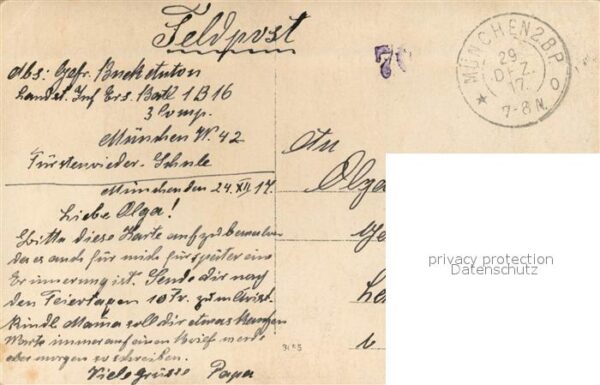 Feldpost
Abs: Gefr. Buck Anton
Landst. Inf Ers. Batl 1 B 16
3 Comp.
München W. 42
Fürstenrieder-Schule
München den 24. XII 17
Liebe Olga!
Bitte diese Karte aufzubewahren
da es auch für mich für später eine
Erinnerung ist. Sende dir nach
den Feiertagen 10 Fr. zum Christ
kindl Mama soll dir etwas kaufen
Warte immer auf einen Brief werde
aber morgen schreiben.
Viele grüsse Papa
MÜNCHEN 2 B.P.
29.
DEZ.
17.
7-8 N.
An
Olga
privacy protection
Datenschutz